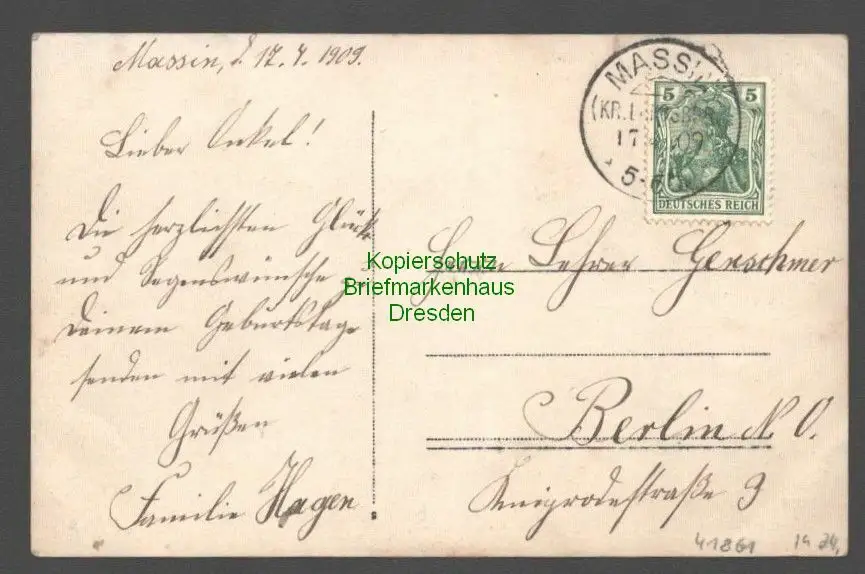 Massin, d. 17.4.1909.
Lieber Onkel!
Die herzlichsten Glück-
und Segenswünsche zu
Deinem Geburtstage
senden mit vielen
Grüßen
Familie Hagen.
MASSIN
(KR. LANDSBERG
17 09
5-6
5 5
DEUTSCHES REICH
Herrn Lehrer Genschmer
Berlin N.O.
Kniprodestraße 9
Kopierschutz
Briefmarkenhaus
Dresden
41861